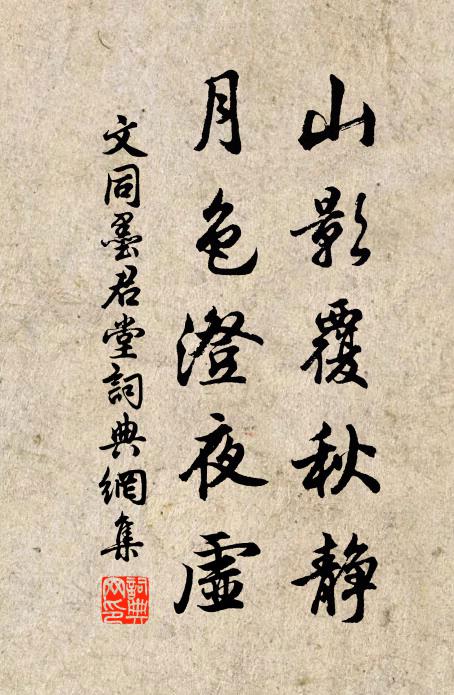 山影覆秋静
月色澄夜虚
文同墨君堂詞典網集
詞典
网印